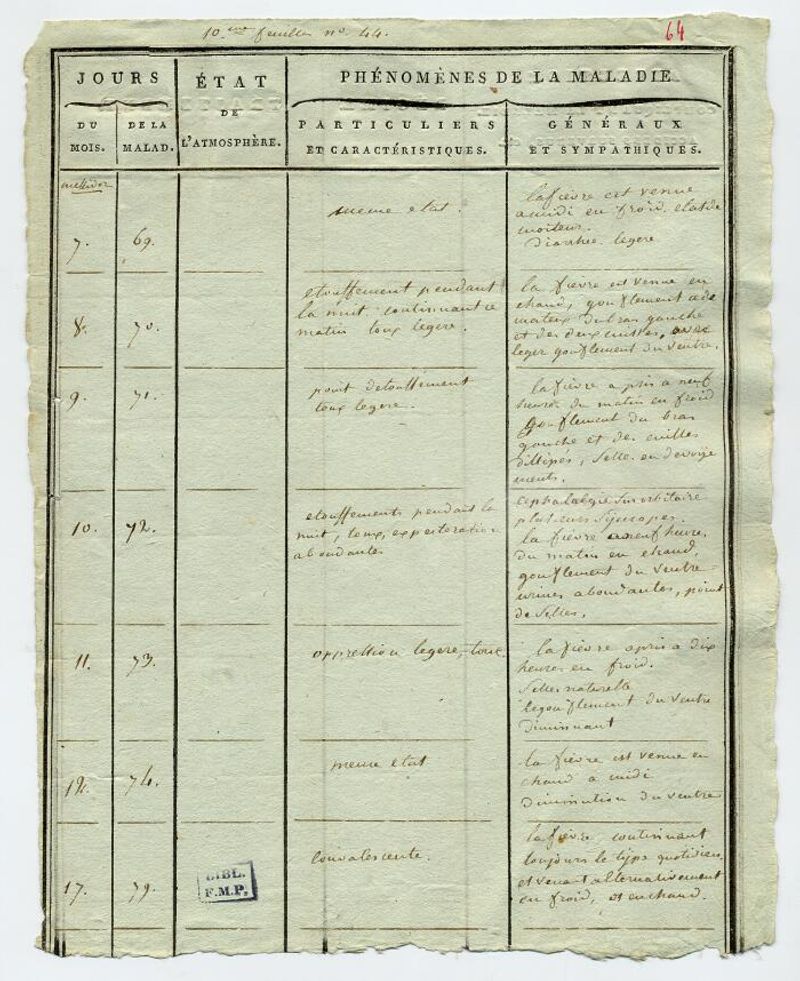 10.me feuille no. 44.
64
JOURS
DU MOIS.
DE LA MALAD.
ÉTAT
DE
L'ATMOSPHÈRE.
PHÉNOMÈNES DE LA MALADIE
PARTICULIERS
ET CARACTÉRISTIQUES.
GÉNÉRAUX
ET SYMPATHIQUES.
messidor
7.
69.
meme etat.
la fievre est venue
a midi en froid.
moiteur.
diarrhee legere
8.
70.
etouffement pendant
la nuit continuant ce
matin toux legere.
la fievre est venue en
chaud, gonflement
du bras gauche
et des deux cuisses, avec
leger gonflement du ventre.
9.
71.
point detouffement
toux legere.
la fievre a pris a neuf
heures du matin en froid
gonflement du bras
gauche et des
dissipés, selles en devoye
ments.
10.
72.
etouffements pendant la
nuit, toux, expectoration
abondantes
cephalalgie sus orbitaire
plusieurs syncopes.
la fievre a neuf heures
du matin en chaud,
gonflement du ventre
urines abondantes, point
de selles.
11.
73.
oppression legere, toux.
la fievre a pris a dix
heures en froid.
selles naturelle
le gonflement du ventre
diminuant
12.
74.
meme etat
la fievre est venue en
chaud a midi
diminution du ventre
17.
79.
convalescente.
la fievre continuant
toujours le type quotidien
et venant alternativement
en froid, et en chaud.
BIBL.
F.M.P.